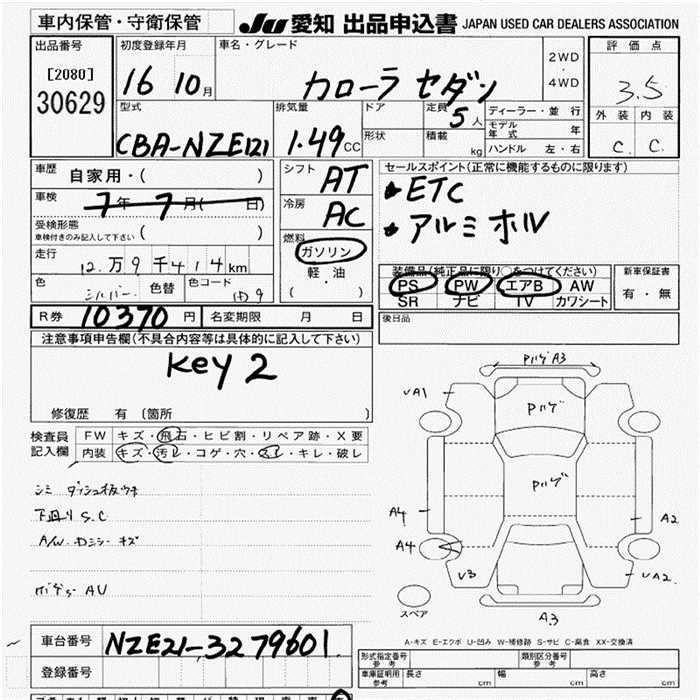 車内保管・守衛保管 JU 愛知 出品申込書 JAPAN USED CAR DEALERS ASSOCIATION
出品番号 初度登録年月 車名・グレード 2WD ・ 4WD 評価点
[2080] 30629 16 10月 カローラ セダン 3.5
型式 排気量 ドア 定員 5人 ディーラー・並行 外装 内装
CBA-NZE121 1.49CC 形状 積載 kg モデル年式 年 C. C.
ハンドル 左・右
車歴 自家用・( ) シフト AT セールスポイント(正常に機能するものに限ります)
車検 7年 7月( 日) 冷房 AC ETC
受検形態 車検付きのみ記入して下さい ( ) アルミホル
走行 12.万9千414km 燃料 ガソリン 軽・油 ( ・ )
装備品(純正品に限り○をつけてください) 新車保証書
色 シルバー 色替 色コード 1D9 PS PW エアB AW 有・無
SR ナビ TV カワシート
R券 10370円 名変期限 月 日 後日品
注意事項申告欄(不具合内容等は具体的に記入して下さい)
Key 2
修復歴 有 〔箇所 〕
検査員記入欄 FW キズ・飛石・ヒビ割・リペア跡・X要
内装 キズ・汚レ・コゲ・穴・スレ・キレ・破レ
シミ ダッシュ板ウキ
下廻り S.C
A/W.Dミラーキズ
AU
Pハゲ A3
UA1
Pハゲ
Pハゲ
A4 A2
A4
U3 UA2.
スペア A3
A-キズ E-エクボ U-凹み W-補修跡 S-サビ C-腐食 XX-交換済
車台番号 NZE121-3279601
登録番号
形式指定番号 参考 類別区分番号 参考
車庫証明用 参考 長さ cm 幅 cm 高さ cm